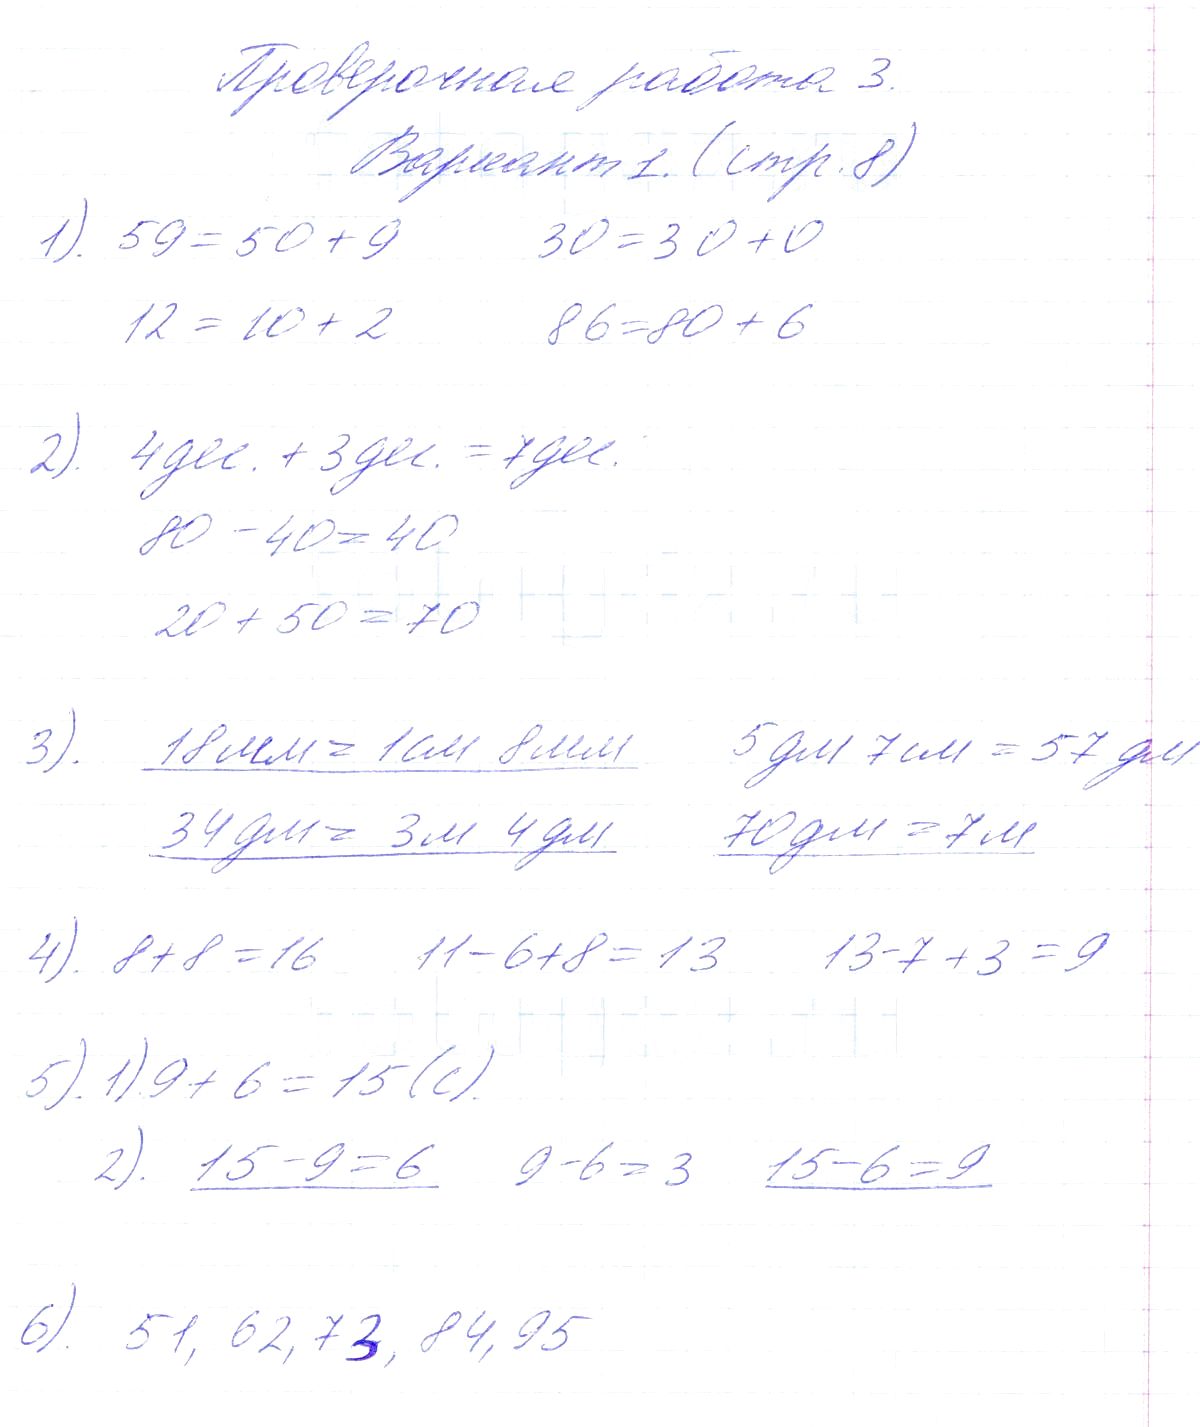 Проверочная работа 3.
Вариант 1. (стр. 8)
1). 59 = 50 + 9 30 = 30 + 0
12 = 10 + 2 86 = 80 + 6
2). 4 дес. + 3 дес. = 7 дес.
80 - 40 = 40
20 + 50 = 70
3). 18 мм = 1 см 8 мм 5 дм 7 см = 57 дм
34 дм = 3 м 4 дм 70 дм = 7 м
4). 8 + 8 = 16 11 - 6 + 8 = 13 13 - 7 + 3 = 9
5). 1). 9 + 6 = 15 (с).
2). 15 - 9 = 6 9 - 6 = 3 15 - 6 = 9
6). 51, 62, 73, 84, 95